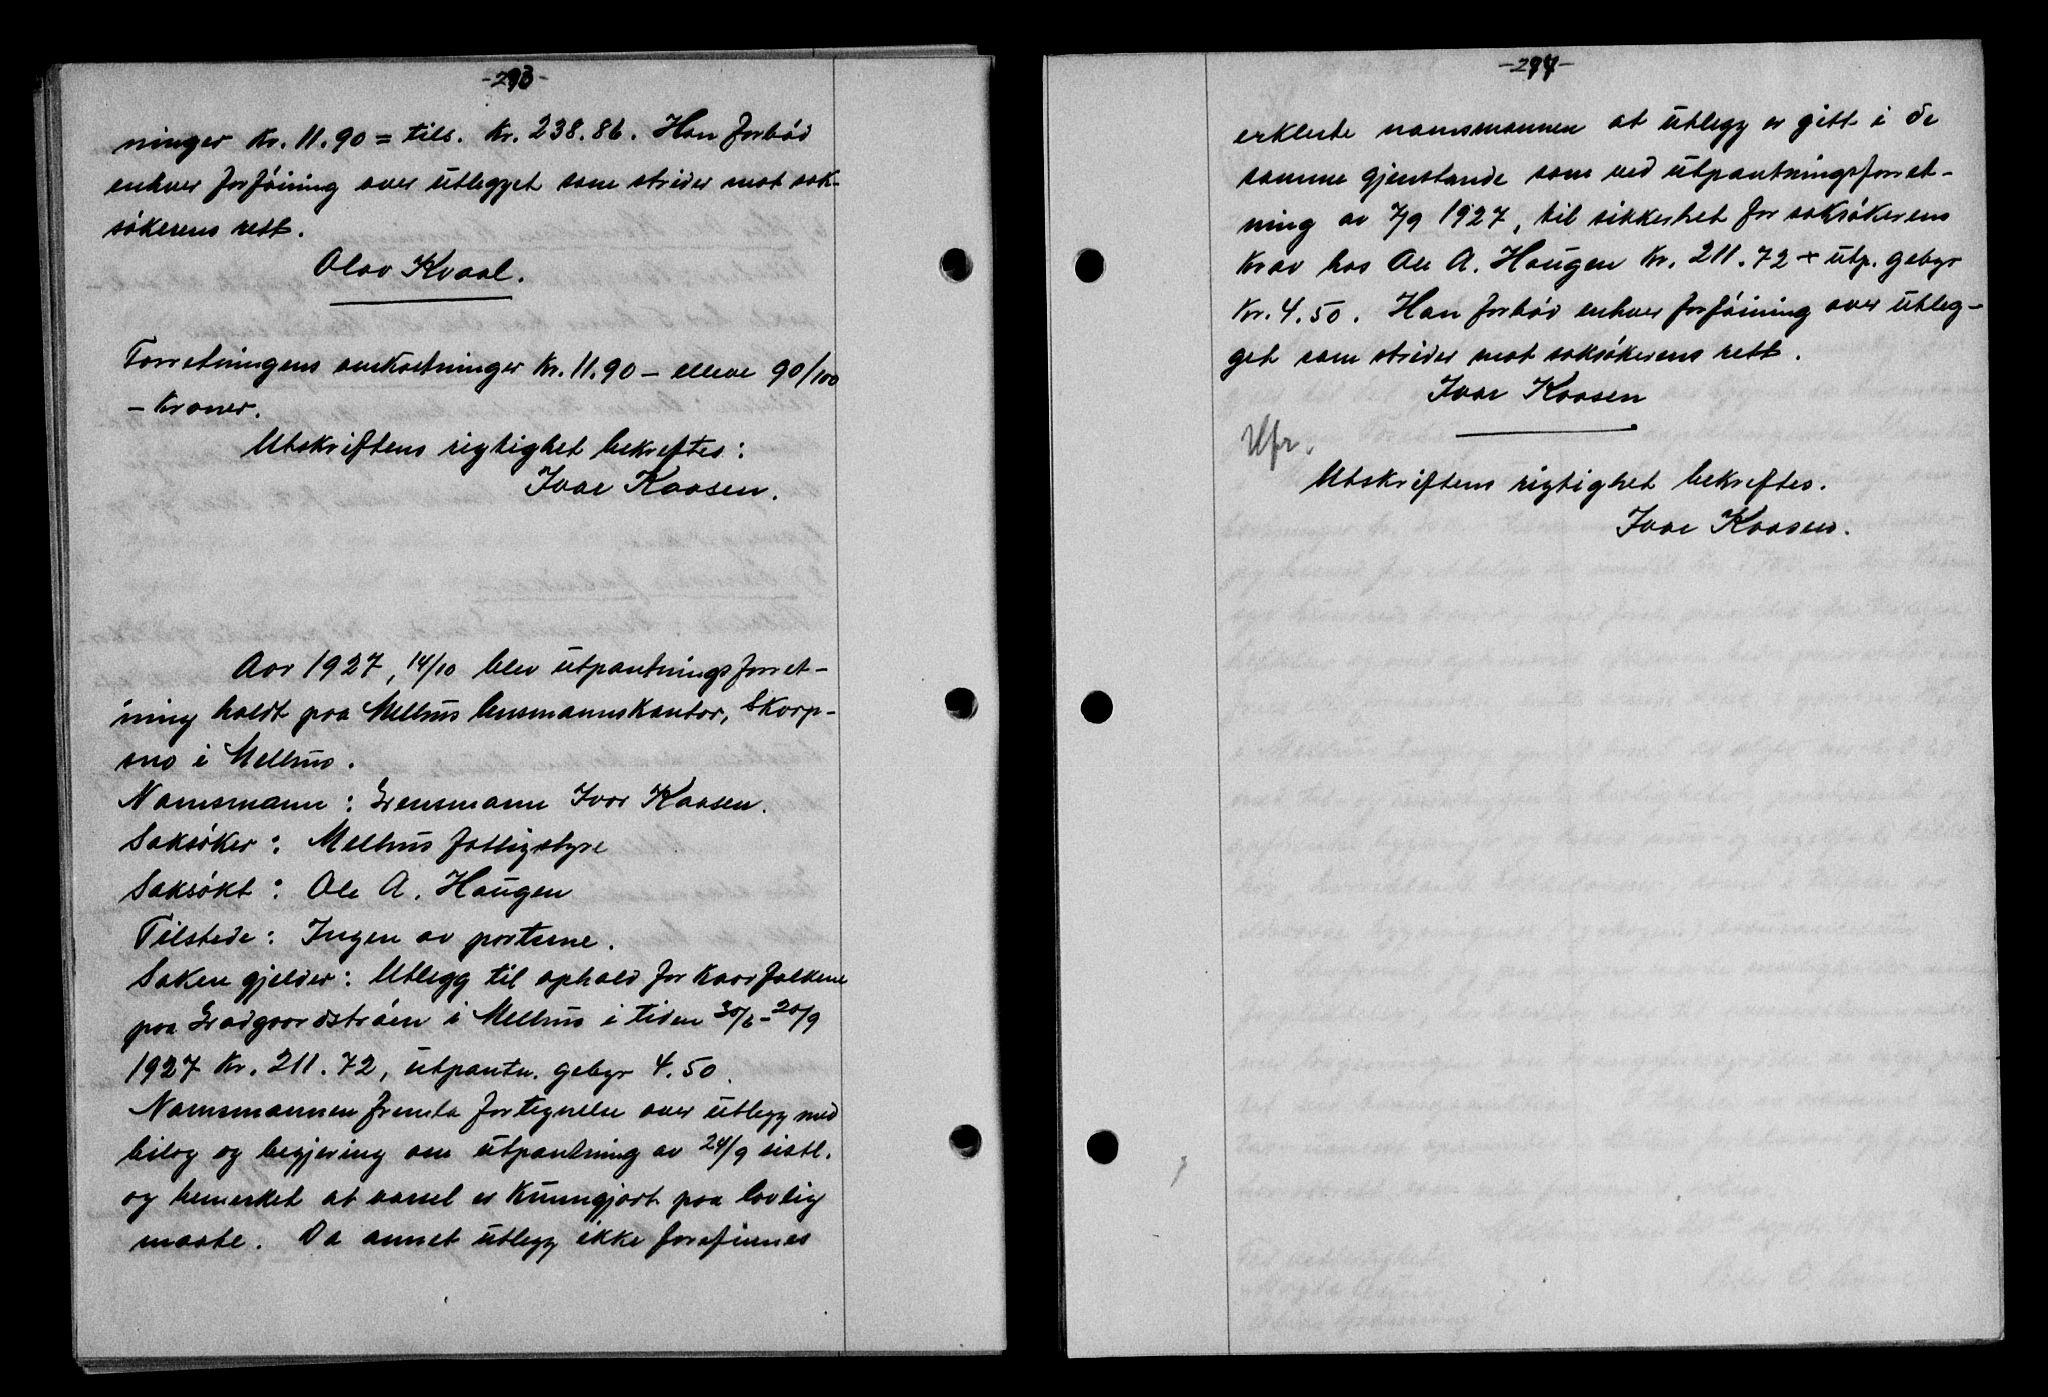 -293-
ninger Kr. 11.90 = tils. Kr. 238.86. Han forbød
enhver forføining over utlegget som strider mot sak-
søkerens rett.
Olav Kvaal.
Forretningens omkostninger Kr. 11.90 – elleve 90/100
– Kroner.
Utskriftens rigtighet bekreftes:
Ivar Kaasen.
Aar 1927, 14/10 blev utpantningsforret-
ning holdt paa Melhus lensmannskontor, Skorp-
mo i Melhus.
Namsmann: Lensmann Ivar Kaasen.
Saksøker: Melhus fattigstyre
Saksøkt: Ole A. Haugen
Tilstede: Ingen av partene.
Saken gjelder: Utlegg til ophold for kaarfolkene
paa i Melhus i tiden 30/6-20/9
1927 Kr. 211.72, utpantn. gebyr 4.50.
Namsmannen fremla fortegnelse over utlegg med
bilag og begjæring om utpantning av 24/9 sistl.
og bemerket at varsel er kunngjort paa lovlig
maate. Da annet utlegg ikke forefinnes
-294-
erklerte namsmannen at utlegg er gitt i de
samme gjenstande som ved utpantningsforret-
ning av 7/9 1927, til sikkerhet for saksøkerens
krav hos Ole A. Haugen Kr. 211.72 + utp. gebyr
Kr. 4.50. Han forbød enhver forføining over utleg-
get som strider mot saksøkerens rett.
Ivar Kaasen
Utskriftens rigtighet bekreftes.
Ivar Kaasen.